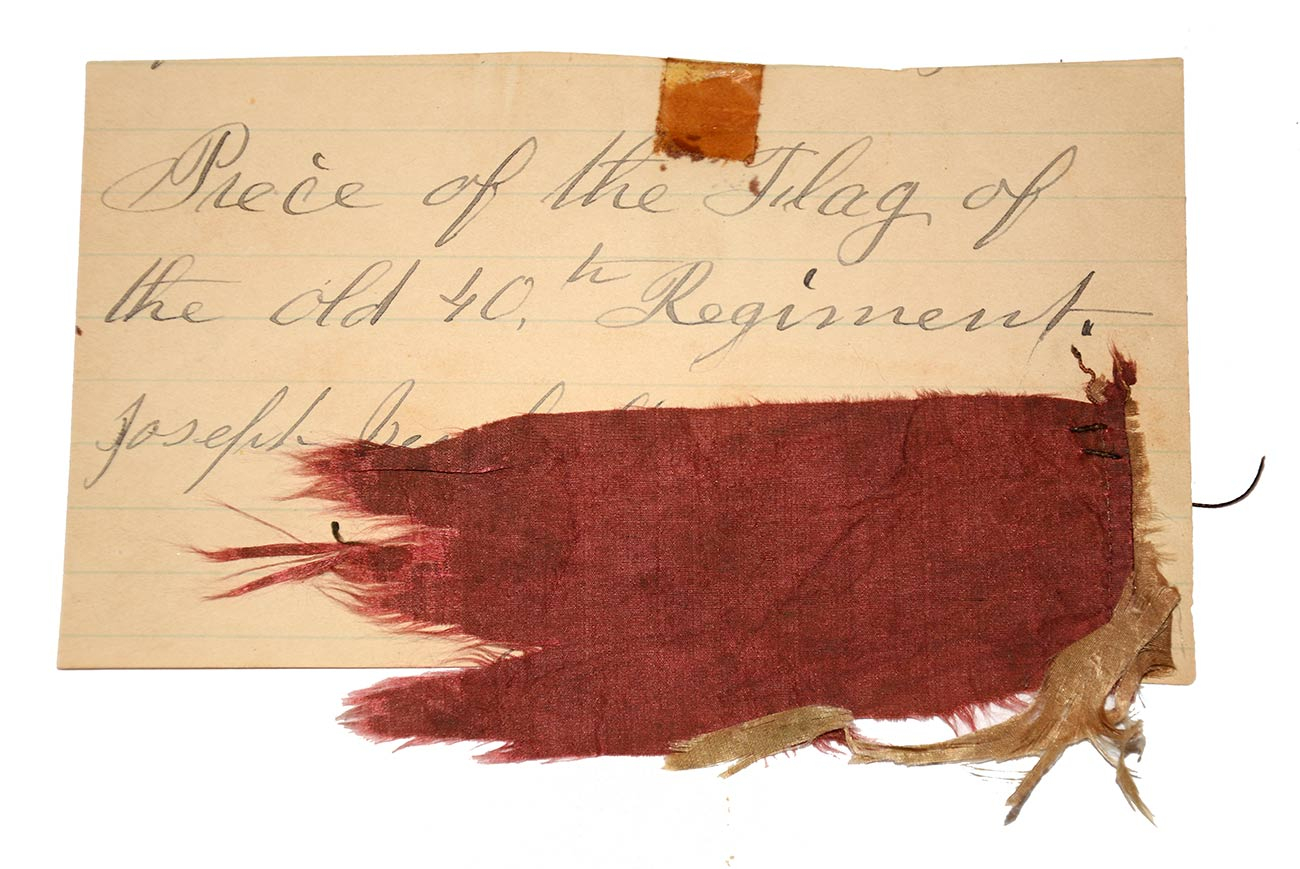 Piece of the Flag of
the old 40,th Regiment.
Joseph